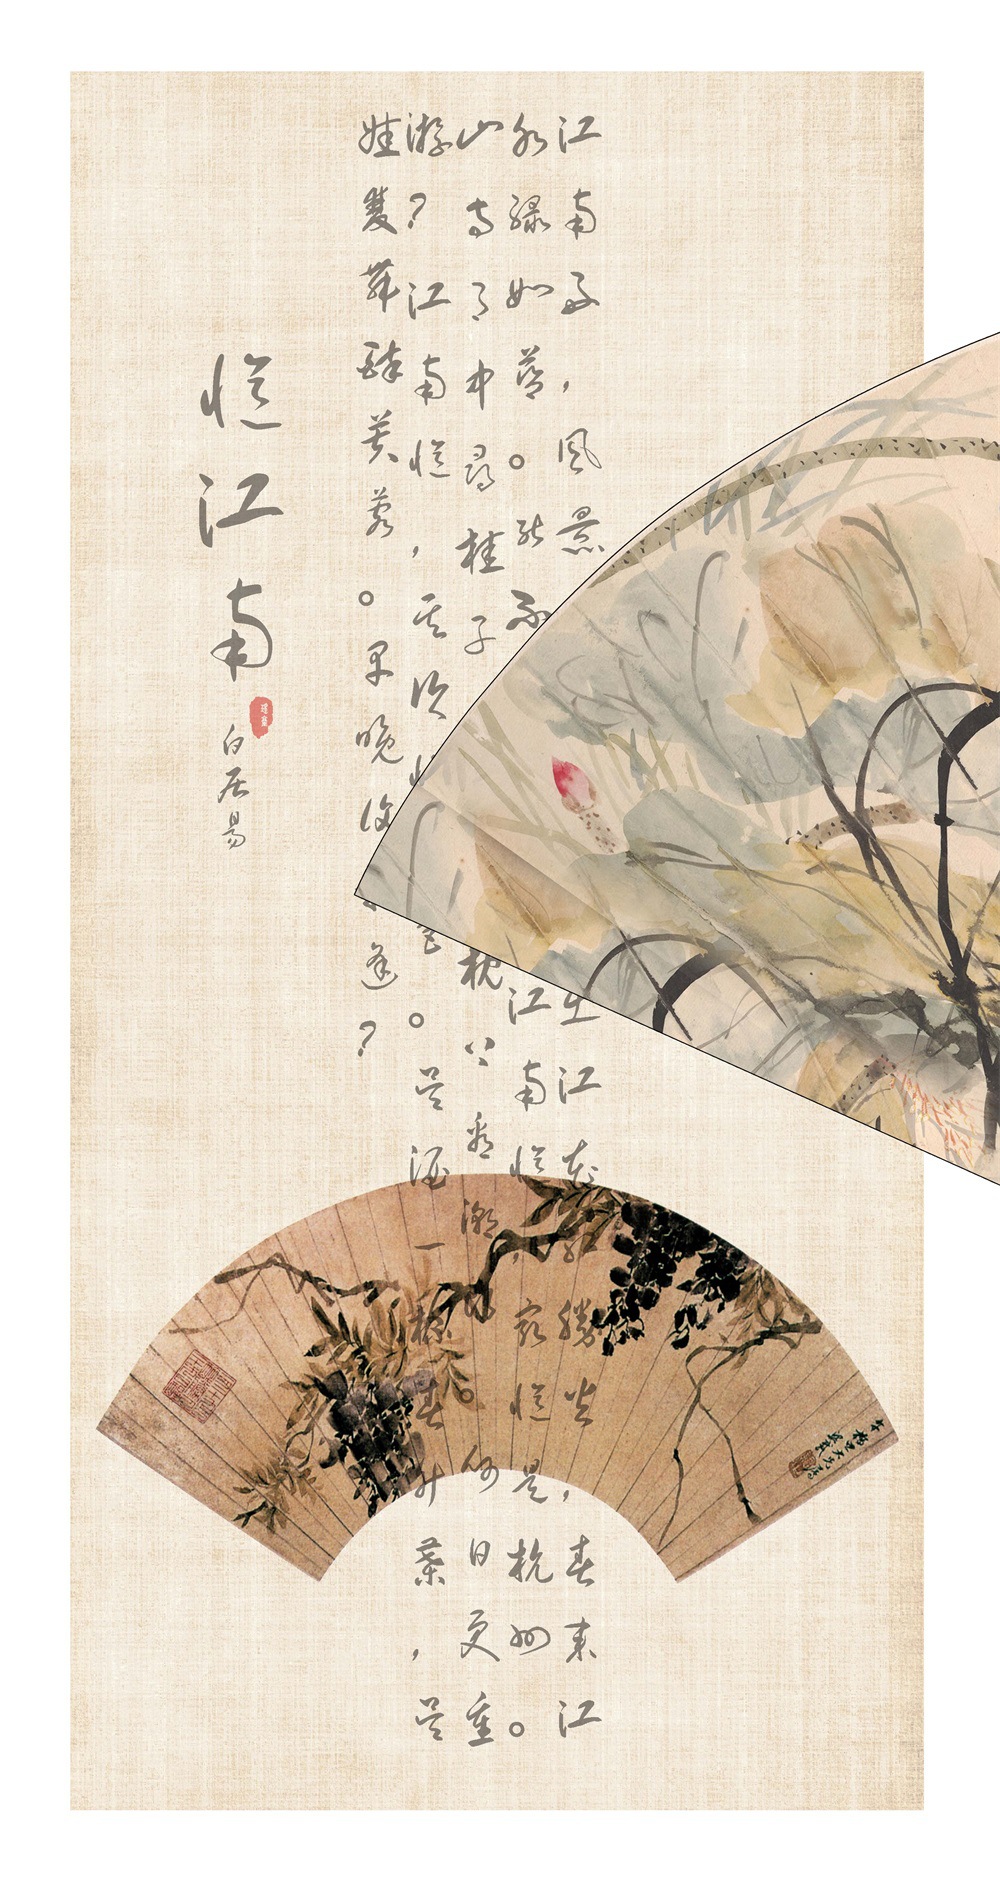 江南好，風景出江花紅勝火，春來江
水綠如藍。能不江南憶，最憶是杭州。
山寺月中尋桂子枕上看潮頭。何日更重
游？江南憶，其次宮。吳酒一杯春竹葉，吳
娃雙舞醉芙蓉。早晚復逢？
憶江南
白居易